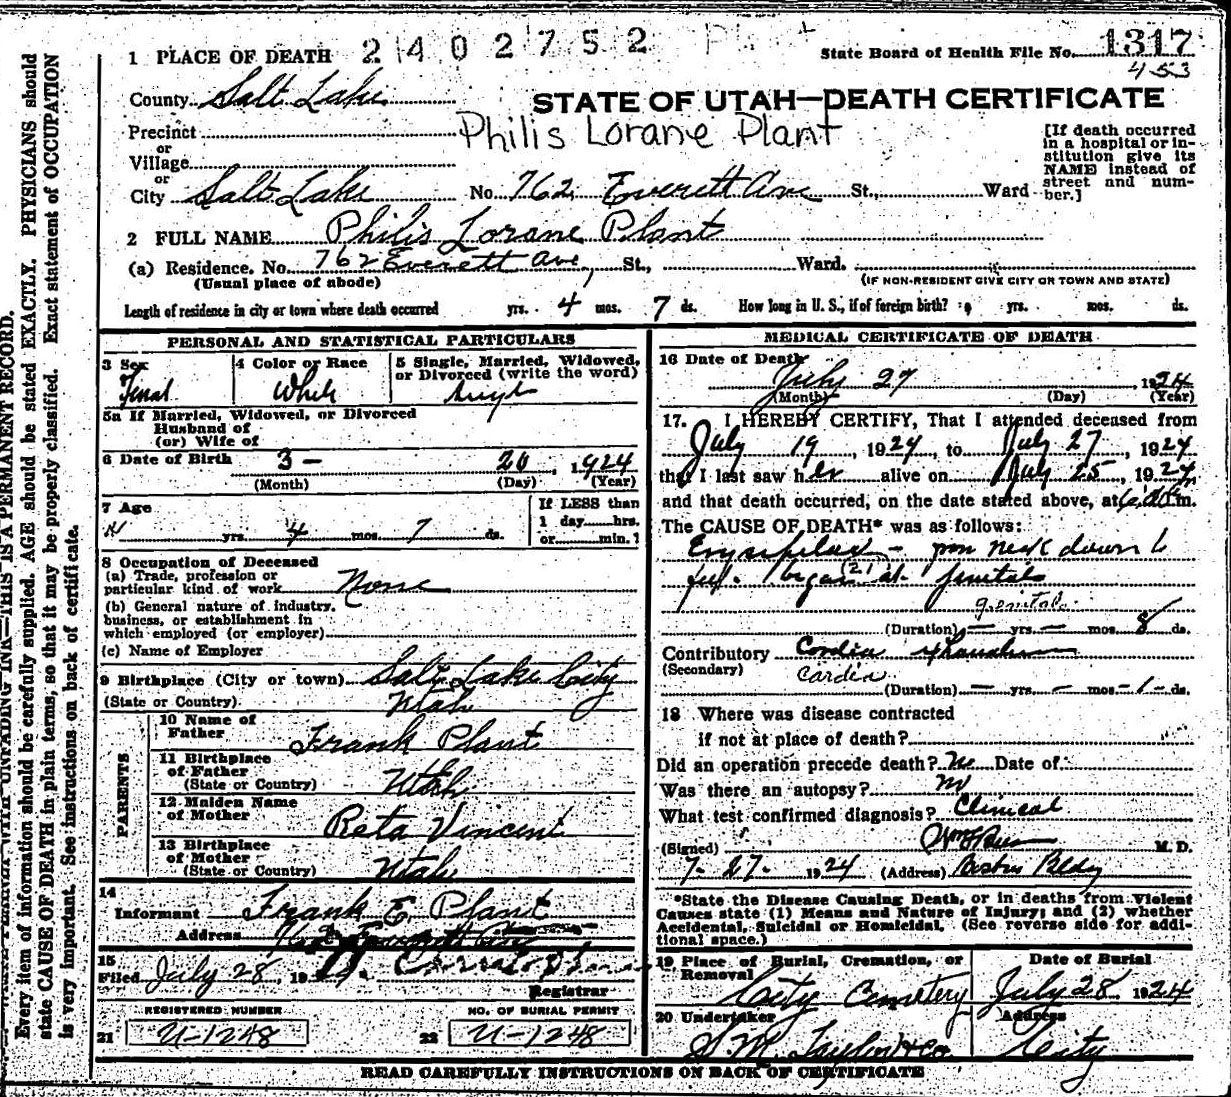 1 PLACE OF DEATH 2402752 Plant State Board of Health File No. 1317
453
County Salt Lake
STATE OF UTAH—DEATH CERTIFICATE
Precinct
Philis Lorane Plant
or
Village
or
City Salt Lake No. 762 Everett Ave St., Ward
[If death occurred in a hospital or in-
stitution give its
NAME instead of
street and num-
ber.]
2 FULL NAME Philis Lorane Plant
(a) Residence. No. 762 Everett Ave, St., Ward.
(Usual place of abode) (IF NON-RESIDENT GIVE CITY OR TOWN AND STATE)
Length of residence in city or town where death occurred yrs. 4 mos. 7 ds. How long in U. S., if of foreign birth? yrs. mos. ds.
PERSONAL AND STATISTICAL PARTICULARS
3 Sex 4 Color or Race 5 Single, Married, Widowed,
or Divorced (write the word)
Femal White Single
5a If Married, Widowed, or Divorced
Husband of
(or) Wife of
6 Date of Birth 3 - 20, 1924
(Month) (Day) (Year)
7 Age If LESS than
1 day hrs.
yrs. 4 mos. 7 ds. or min.
8 Occupation of Deceased
(a) Trade, profession or
particular kind of work None
(b) General nature of industry.
business, or establishment in
which employed (or employer)
(c) Name of Employer
9 Birthplace (City or town) Salt Lake City
(State or Country) Utah
PARENTS
10 Name of
Father Frank Plant
11 Birthplace
of Father
(State or Country) Utah
12 Maiden Name
of Mother Reta Vincent
13 Birthplace
of Mother
(State or Country) Utah
14
Informant Frank E. Plant
Address 762 Everett Ave
15
Filed July 28, 1924
Registrar
REGISTERED NUMBER NO. OF BURIAL PERMIT
21 U-1248 22 U-1248
MEDICAL CERTIFICATE OF DEATH
16 Date of Death
July 27, 1924
(Month) (Day) (Year)
17. I HEREBY CERTIFY, That I attended deceased from
July 19, 1924, to July 27, 1924
that I last saw her alive on July 25, 1924
and that death occurred, on the date stated above, at m.
The CAUSE OF DEATH* was as follows:
Erysipelas - from neck down to
feet. began at genitals
(2)
genitals
(Duration) — yrs. — mos. 8 ds.
Contributory Cardia exhaustion
(Secondary) Cardia
(Duration) — yrs. — mos. -1- ds.
18 Where was disease contracted
if not at place of death?
Did an operation precede death? no Date of
Was there an autopsy? no
What test confirmed diagnosis? Clinical
(Signed) M. D.
7-27-1924 (Address) Boston Bldg
*State the Disease Causing Death, or in deaths from Violent
Causes state (1) Means and Nature of Injury; and (2) whether
Accidental, Suicidal or Homicidal. (See reverse side for addi-
tional space.)
19 Place of Burial, Cremation, or
Removal
Date of Burial
City Cemetery July 28 1924
20 Undertaker Address
S.M. Taylor & Co City
READ CAREFULLY INSTRUCTIONS ON BACK OF CERTIFICATE
THIS IS A PERMANENT RECORD.
Every item of information should be carefully supplied. AGE should be stated EXACTLY. PHYSICIANS should
state CAUSE OF DEATH in plain terms, so that it may be properly classified. Exact statement of OCCUPATION
is very important. See instructions on back of certificate.